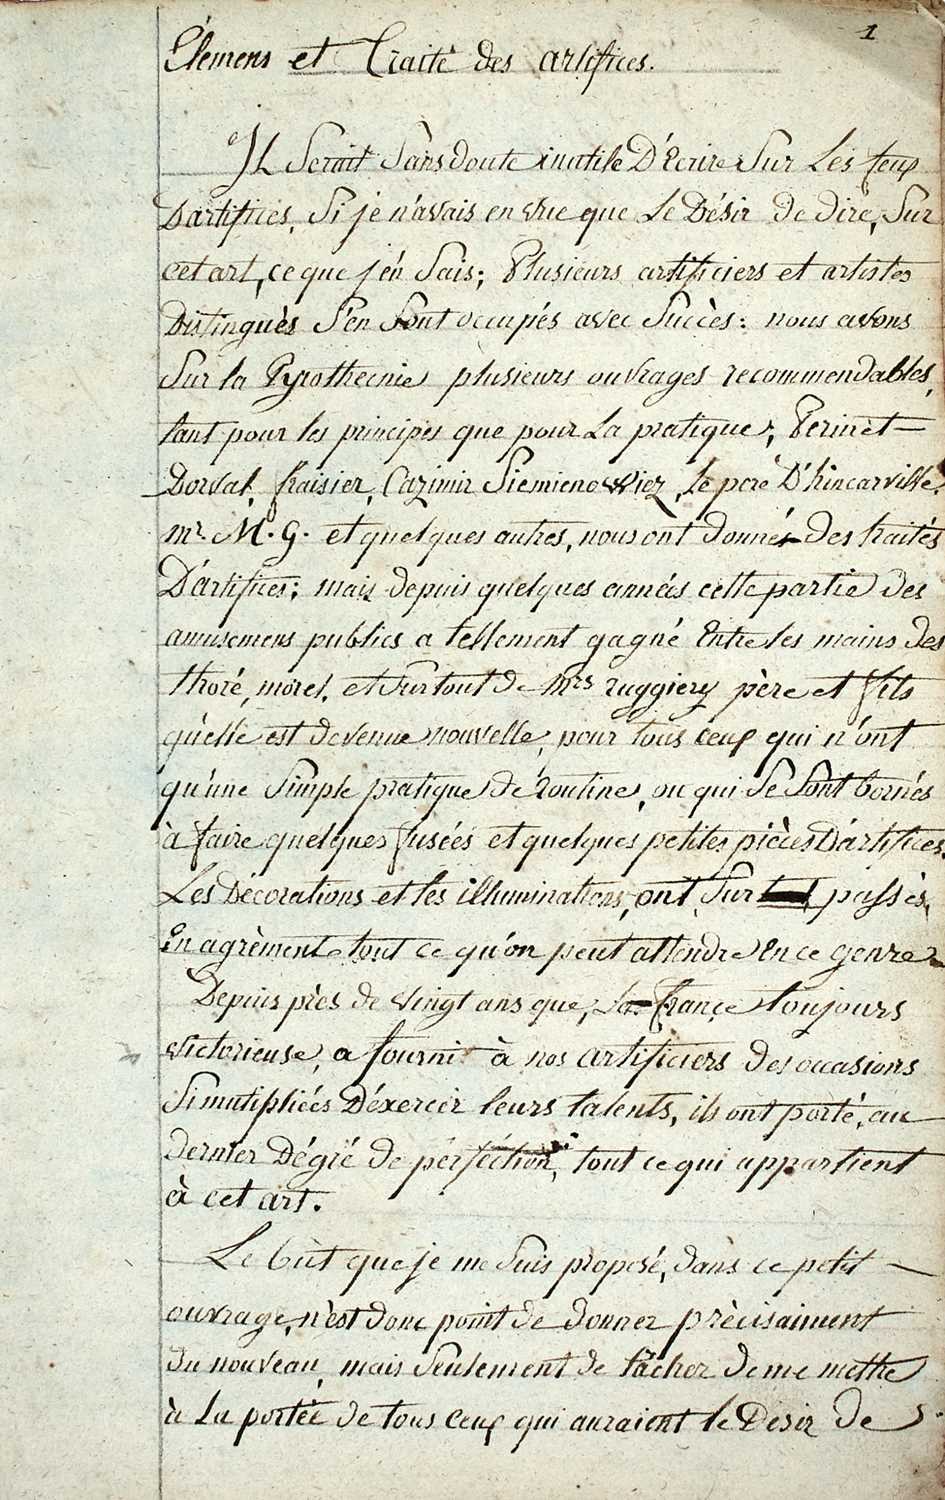 1
Élémens et Traité des artifices.
Il Serait Sans doute inutile D'Ecrire Sur Les feux
D'artifices, Si je n'avais en vue que Le Désir de dire, Sur
cet art, ce que j'en Sais; Plusieurs artificiers et artistes
Distingués S'en Sont occupés avec Succès: nous avons
Sur la Pyrothecnie plusieurs ouvrages recommendables,
tant pour les principes que pour La pratique; Perinet
Dorval, fraisier, Cazimir Siemienowiez, Le pere D'hincarville,
mr. M. G. et quelques autres, nous ont donné des traités
D'artifices; mais depuis quelques années cette partie des
amusemens publics a tellement gagné Entre les mains des
thoré, morel, et Surtout de Mrs ruggiery père et fils
qu'elle est devenue nouvelle, pour tous ceux qui n'ont
qu'une Simple pratique de routine, ou qui Se Sont bornés
à faire quelques fusées et quelques petites pièces D'artifices.
Les Décorations et les illuminations, ont Sur passés,
En agrèment tout ce qu'on peut attendre En ce genre
Depuis près de vingt ans que, La france toujours
victorieuse, a fourni à nos artificiers des occasions
Si mutipliées D'éxercer leurs talents, ils ont porté, au
dernier Dégré de pérféction, tout ce qui appartient
à cet art.
Le bùt que je me Suis proposé, dans ce petit
ouvrage, n'est donc point de donner prècisaiment
du nouveau, mais Seulement de tâcher de me mettre
à La portée de tous ceux qui auraient le Desir de